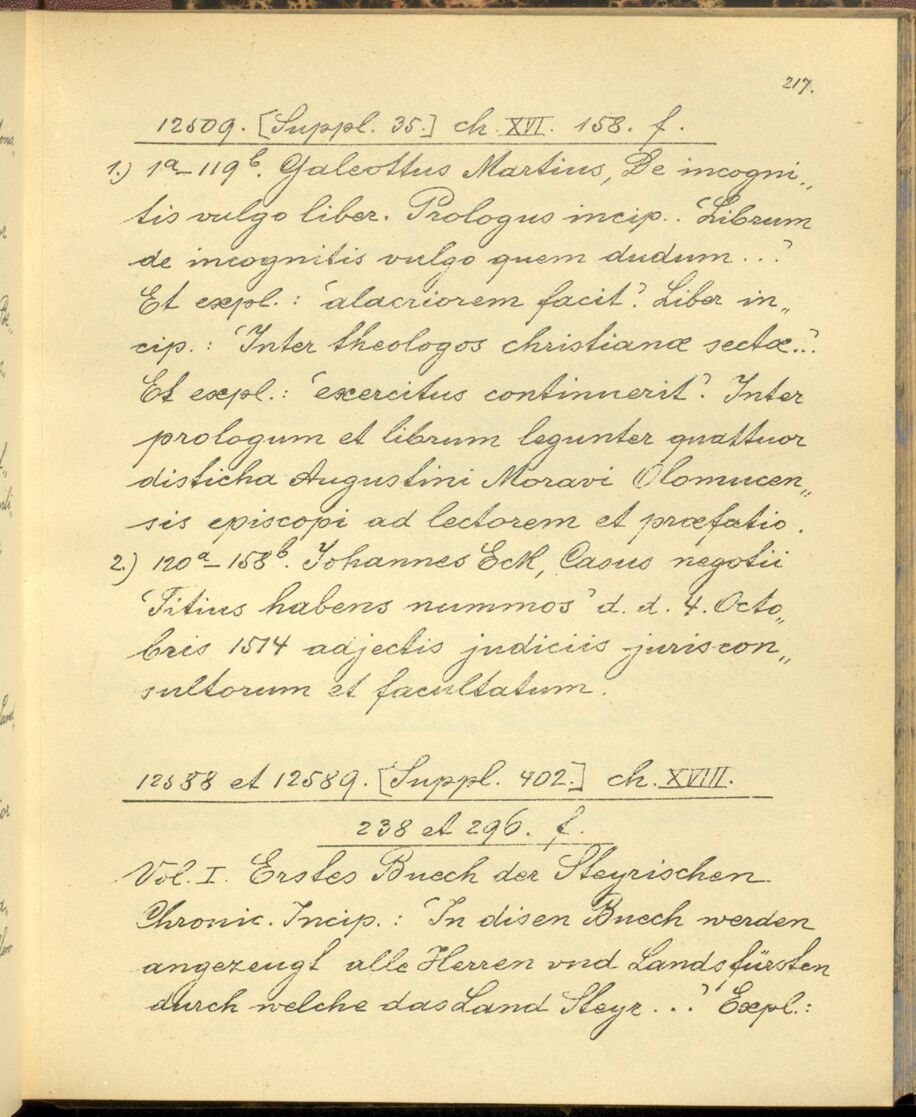 217.
12509. [Suppl. 35.] ch. XVI. 158. f.
1.) 1a–119b. Galeottus Martius, De incogni„
tis vulgo liber. Prologus incip.. 'Librum
de incognitis vulgo quem dudum ...'
Et expl.: 'alacriorem facit'. Liber in„
cip.: 'Inter theologos christianæ sectæ...'.
Et expl.: 'exercitus continuerit'. Inter
prologum et librum legunter quattuor
disticha Augustini Moravi Olomucen„
sis episcopi ad lectorem et præfatio.
2.) 120a–158b. Johannes Eck, Casus negotii
'Titius habens nummos' d. d. 4. Octo„
bris 1514 adjectis judiciis juriscon„
sultorum et facultatum.
12588 et 12589. [Suppl. 402.] ch. XVIII.
238 et 296. f.
Vol. I. Erstes Buech der Steyrischen
Chronic. Incip.: 'In disen Buech werden
angezeugt alle Herren vnd Landsfürsten
durch welche das Land Steyr ...' Expl.: